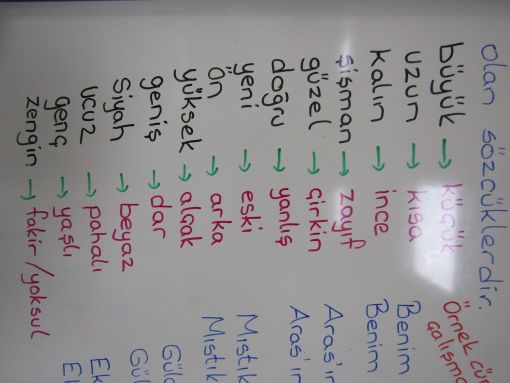 olan sözcüklerdir.
büyük → küçük
uzun → kısa
kalın → ince
şişman → zayıf
güzel → çirkin
doğru → yanlış
yeni → eski
ön → arka
yüksek → alçak
geniş → dar
Siyah → beyaz
ucuz → pahalı
genç → yaşlı
zengin → fakir/yoksul
Örnek cü
çalışma
Benim
Benim
Aras'ın
Aras'ın
Mıstık
Mıstık
Gül
Ek